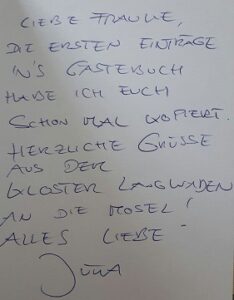 LIEBE FRAUKE,
DIE ERSTEN EINTRÄGE
IN'S GÄSTEBUCH
HABE ICH EUCH
SCHON MAL KOPIERT.
HERZLICHE GRÜSSE
AUS DER
KLOSTER LANGWADEN
AN DIE MOSEL!
ALLES LIEBE